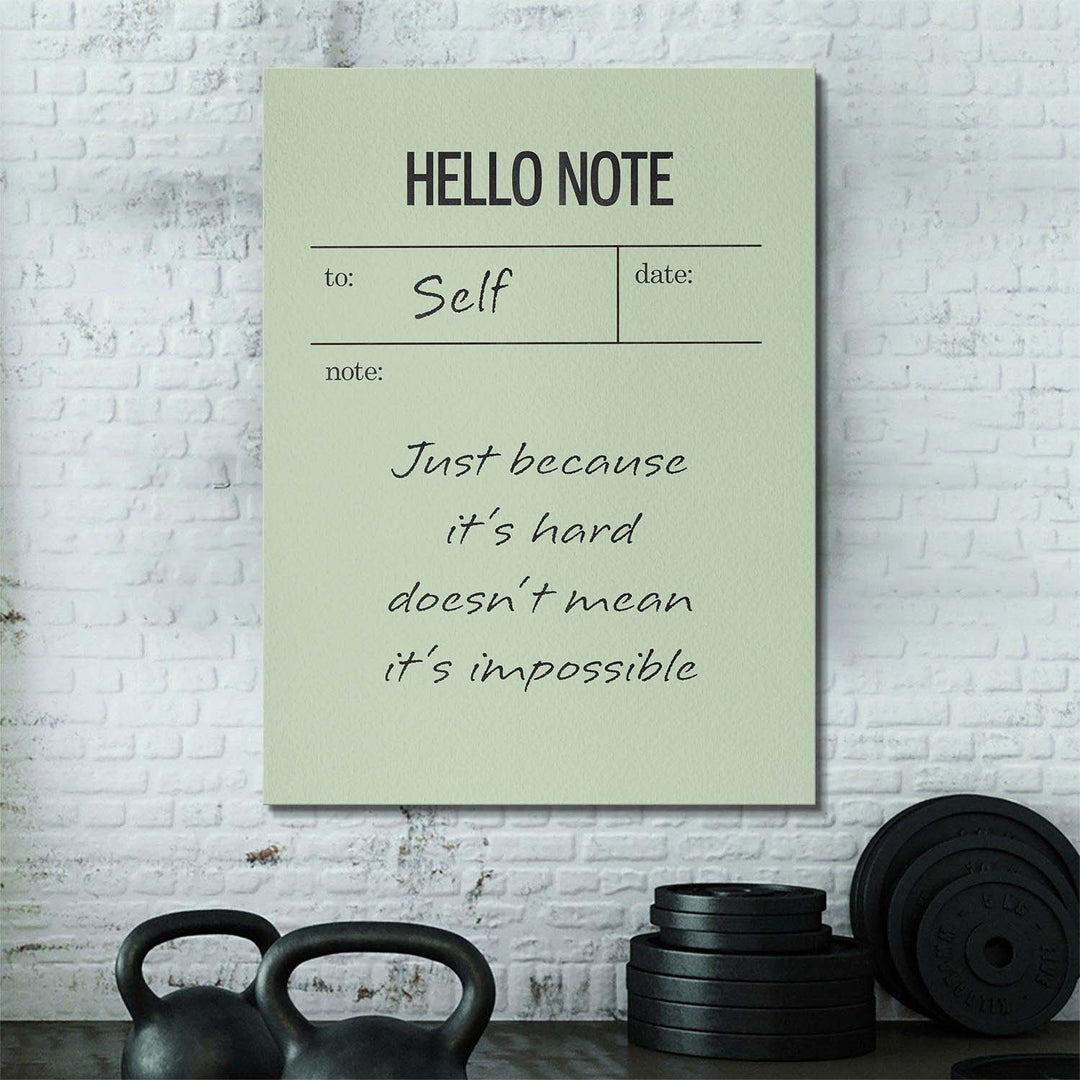 HELLO NOTE
to: Self
date:
note:
Just because
it's hard
doesn't mean
it's impossible
5 KG